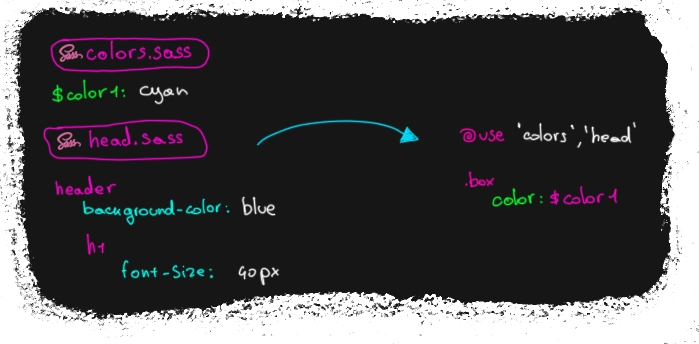 Sass colors.sass
$color1: cyan
Sass head.sass
header
background-color: blue
h1
font-size: 40px
@use 'colors','head'
.box
color: $color1